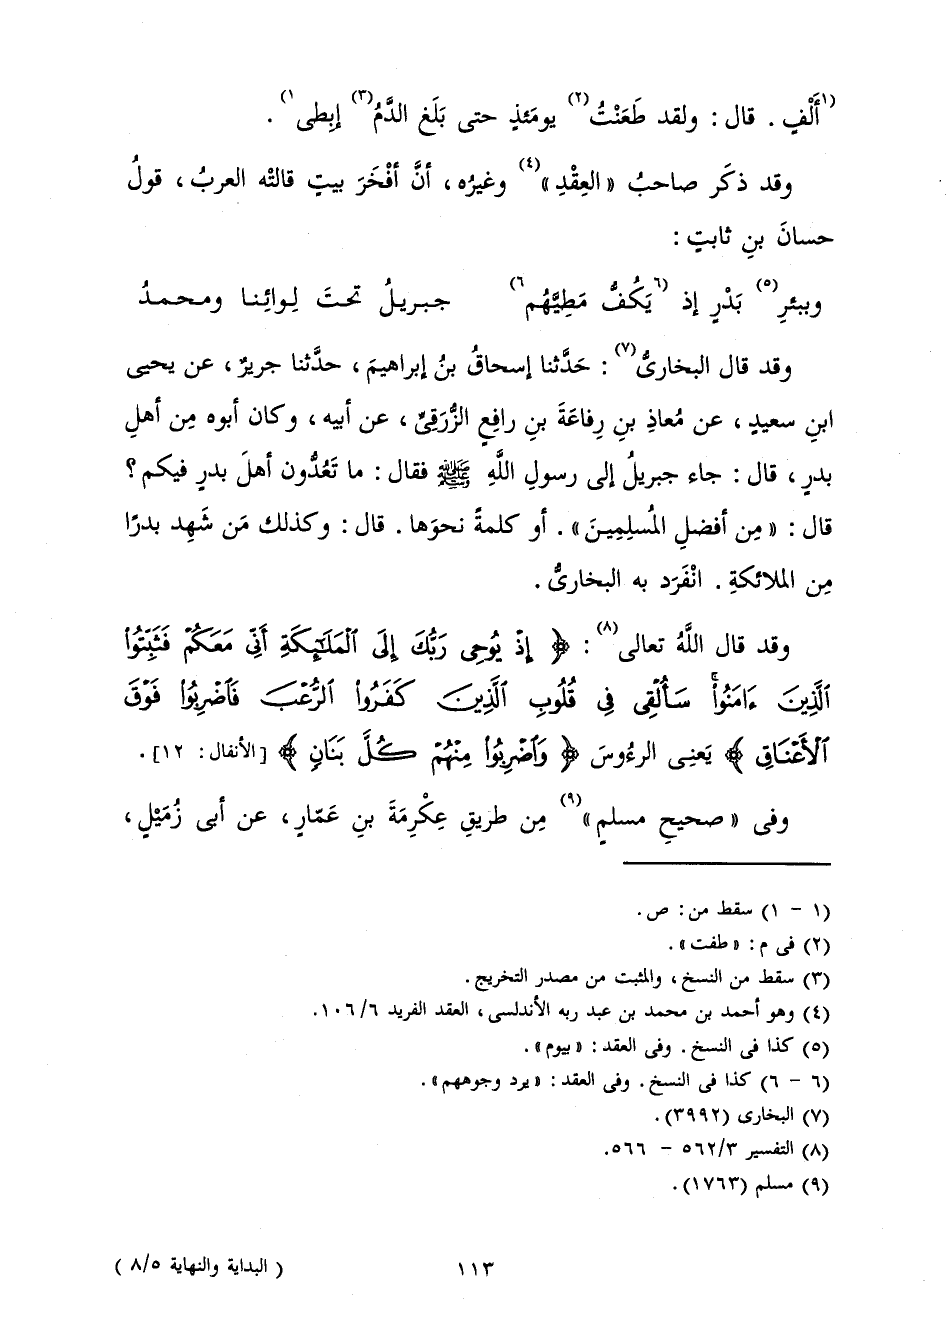 (١أَلْفٍ . قال : ولقد طَعَنْتُ(٢) يومَئذٍ حتى بَلَغ الدَّمُ(٣) إبِطى١) .
وقد ذكَر صاحبُ « العِقْدِ »(٤) وغيرُه ، أنَّ أفْخَرَ بيتٍ قالتْه العربُ ، قولُ
حسانَ بنِ ثابتٍ :
وببئرِ(٥) بَدْرٍ إذ (٦يَكُفُّ مَطِيَّهُم٦) جبريلُ تحتَ لِوائِنا ومحمدُ
وقد قال البخارىُّ(٧) : حَدَّثنا إسحاقُ بنُ إبراهيمَ ، حدَّثنا جريرٌ ، عن يحيى
ابنِ سعيدٍ ، عن مُعاذِ بنِ رِفاعَةَ بنِ رافِعٍ الزُّرَقِىِّ ، عن أبيه ، وكان أبوه مِن أهلِ
بدرٍ ، قال : جاء جبريلُ إلى رسولِ اللَّهِ ﷺ فقال : ما تَعُدُّون أهلَ بدرٍ فيكم ؟
قال : « مِن أفضلِ المُسلِمِينَ » . أو كلمةً نحوَها . قال : وكذلك مَن شَهِد بدرًا
مِن الملائكةِ . انْفَرَد به البخارىُّ .
وقد قال اللَّهُ تعالى(٨) : ﴿ إِذْ يُوحِى رَبُّكَ إِلَى ٱلْمَلَـٰٓئِكَةِ أَنِّى مَعَكُمْ فَثَبِّتُوا۟
ٱلَّذِينَ ءَامَنُوا۟ۚ سَأُلْقِى فِى قُلُوبِ ٱلَّذِينَ كَفَرُوا۟ ٱلرُّعْبَ فَٱضْرِبُوا۟ فَوْقَ
ٱلْأَعْنَاقِ ﴾ يَعنِى الرءُوسَ ﴿ وَٱضْرِبُوا۟ مِنْهُمْ كُلَّ بَنَانٍ ﴾ [ الأنفال : ١٢ ] .
وفى « صحيحِ مسلمٍ »(٩) مِن طريقِ عِكْرِمَةَ بنِ عَمّارٍ ، عن أبى زُمَيْلٍ ،
(١ - ١) سقط من : ص .
(٢) فى م : « طفت » .
(٣) سقط من النسخ ، والمثبت من مصدر التخريج .
(٤) وهو أحمد بن محمد بن عبد ربه الأندلسى ، العقد الفريد ١٠٦/٦ .
(٥) كذا فى النسخ . وفى العقد : « بيوم » .
(٦ - ٦) كذا فى النسخ . وفى العقد : « يرد وجوههم » .
(٧) البخارى (٣٩٩٢) .
(٨) التفسير ٥٦٢/٣ - ٥٦٦ .
(٩) مسلم (١٧٦٣) .
١١٣ ( البداية والنهاية ٨/٥ )